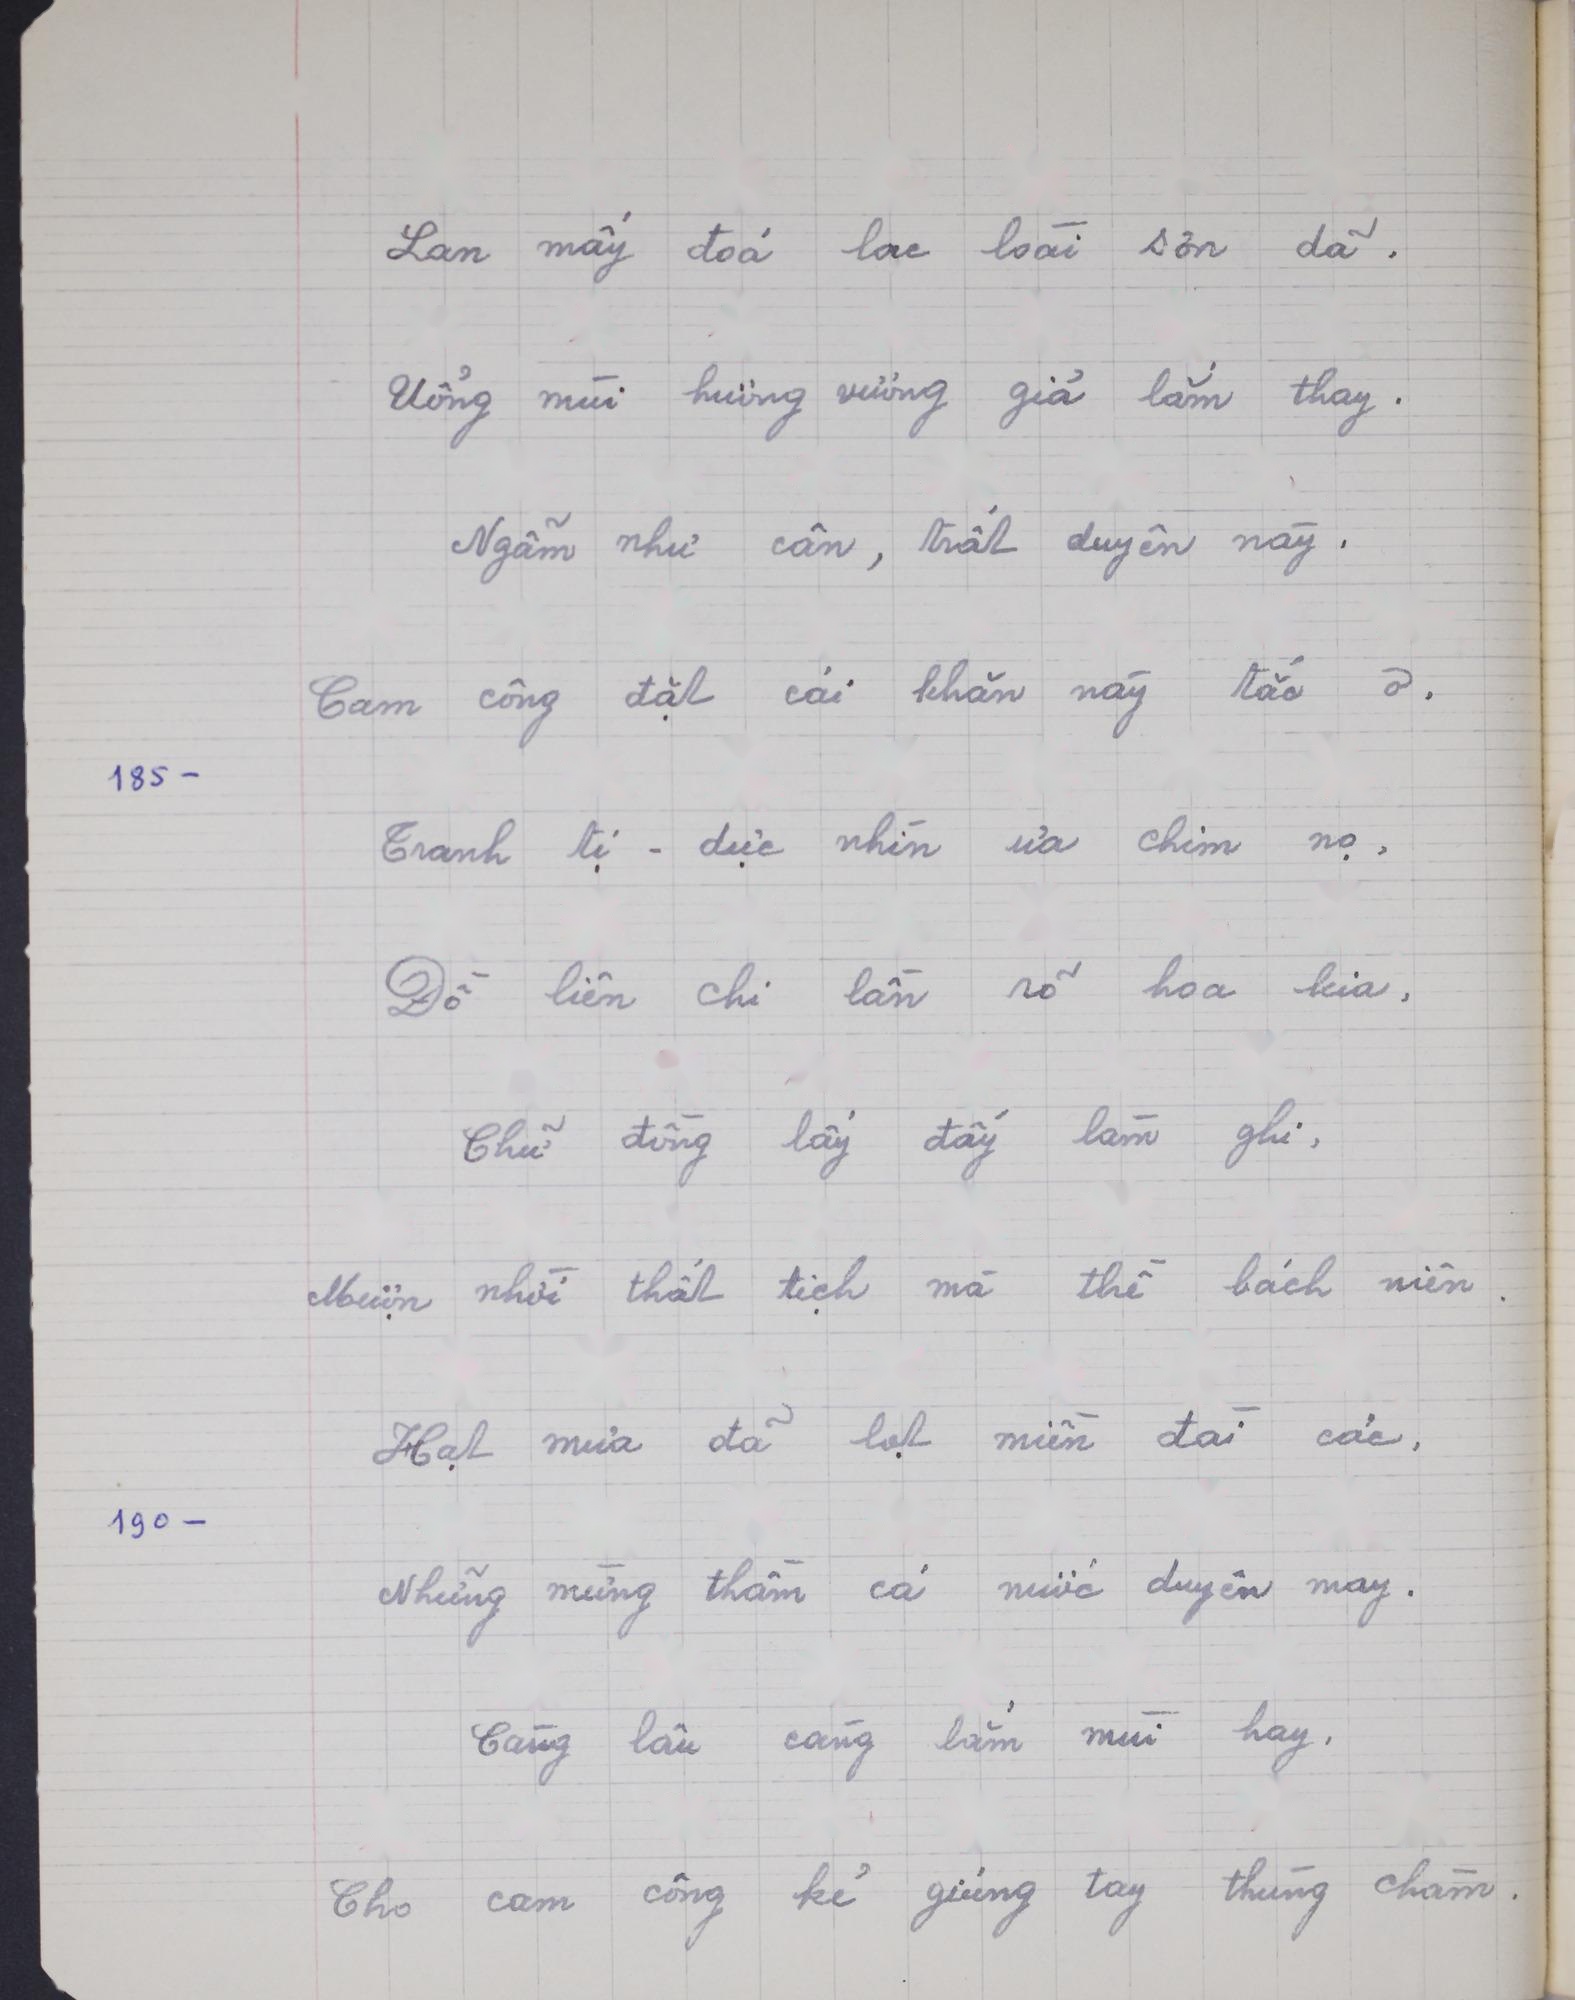 Lan mấy đoá lac loài sơn dã.
Uổng mùi hương vương giả lắm thay.
Ngẫm như cân, trất duyên này.
Cam công đặt cái khăn này tắc ơ.
185 –
Tranh tị - dực nhìn ưa chim nọ,
Đồ liên chi lần rỡ hoa kia,
Chữ đồng lấy đấy làm ghi,
Mượn nhời thất tịch mà thề bách niên.
Hạt mưa đã lọt miền đài các,
190 –
Những mừng thầm cá nước duyên may.
Càng lâu càng lắm mùi hay,
Cho cam công kẻ giúng tay thùng chàm.